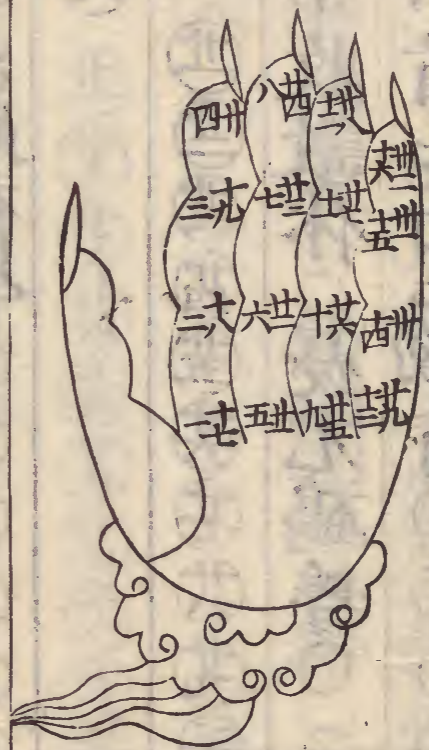 四 廿
八 廿四
十二 廿八
十六 卅二
三 十九
七 廿三
十一 廿七
十五 卅一
二 十八
六 廿二
十 廿六
十四 卅
一 十七
五 廿一
九 廿五
十三 廿九